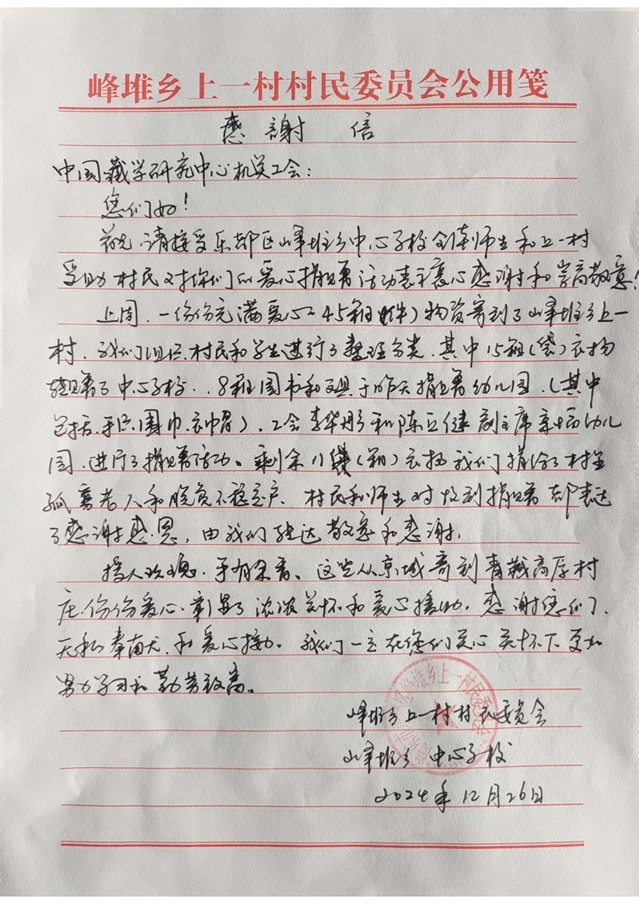 峰堆乡上一村村民委员会公用笺
感謝信
中国藏学研究中心机关工会:
您们好!
首先,请接受乐都区峰堆乡中心学校全体师生和上一村
受助村民对你们的爱心捐赠活动表示衷心感谢和崇高敬意!
上周,一份份充满爱心的45箱(件)物资寄到了峰堆乡上一
村,我们组织村民和学生进行了整理分类,其中15箱(袋)衣物
捐赠了中心学校,8箱图书和文具于昨天捐赠幼儿园,(其中
包括手套、围巾、衣帽),工会李华彤和陈立健副主席亲临幼儿
园,进行了捐赠活动。剩余11袋(箱)衣物我们捐给了村里
孤寡老人和脱贫不稳定户,村民和师生对收到捐赠都表达
了感谢感恩,由我们转达敬意和感谢。
赠人玫瑰,手有余香。这些从京城寄到青藏高原村
庄份份爱心,彰显了浓浓关怀和爱心援助,感谢您们
无私奉献和爱心接力。我们一定在您们关心关怀下更加
努力学习和勤劳致富。
峰堆乡上一村村民委员会
峰堆乡中心学校
2024年12月26日